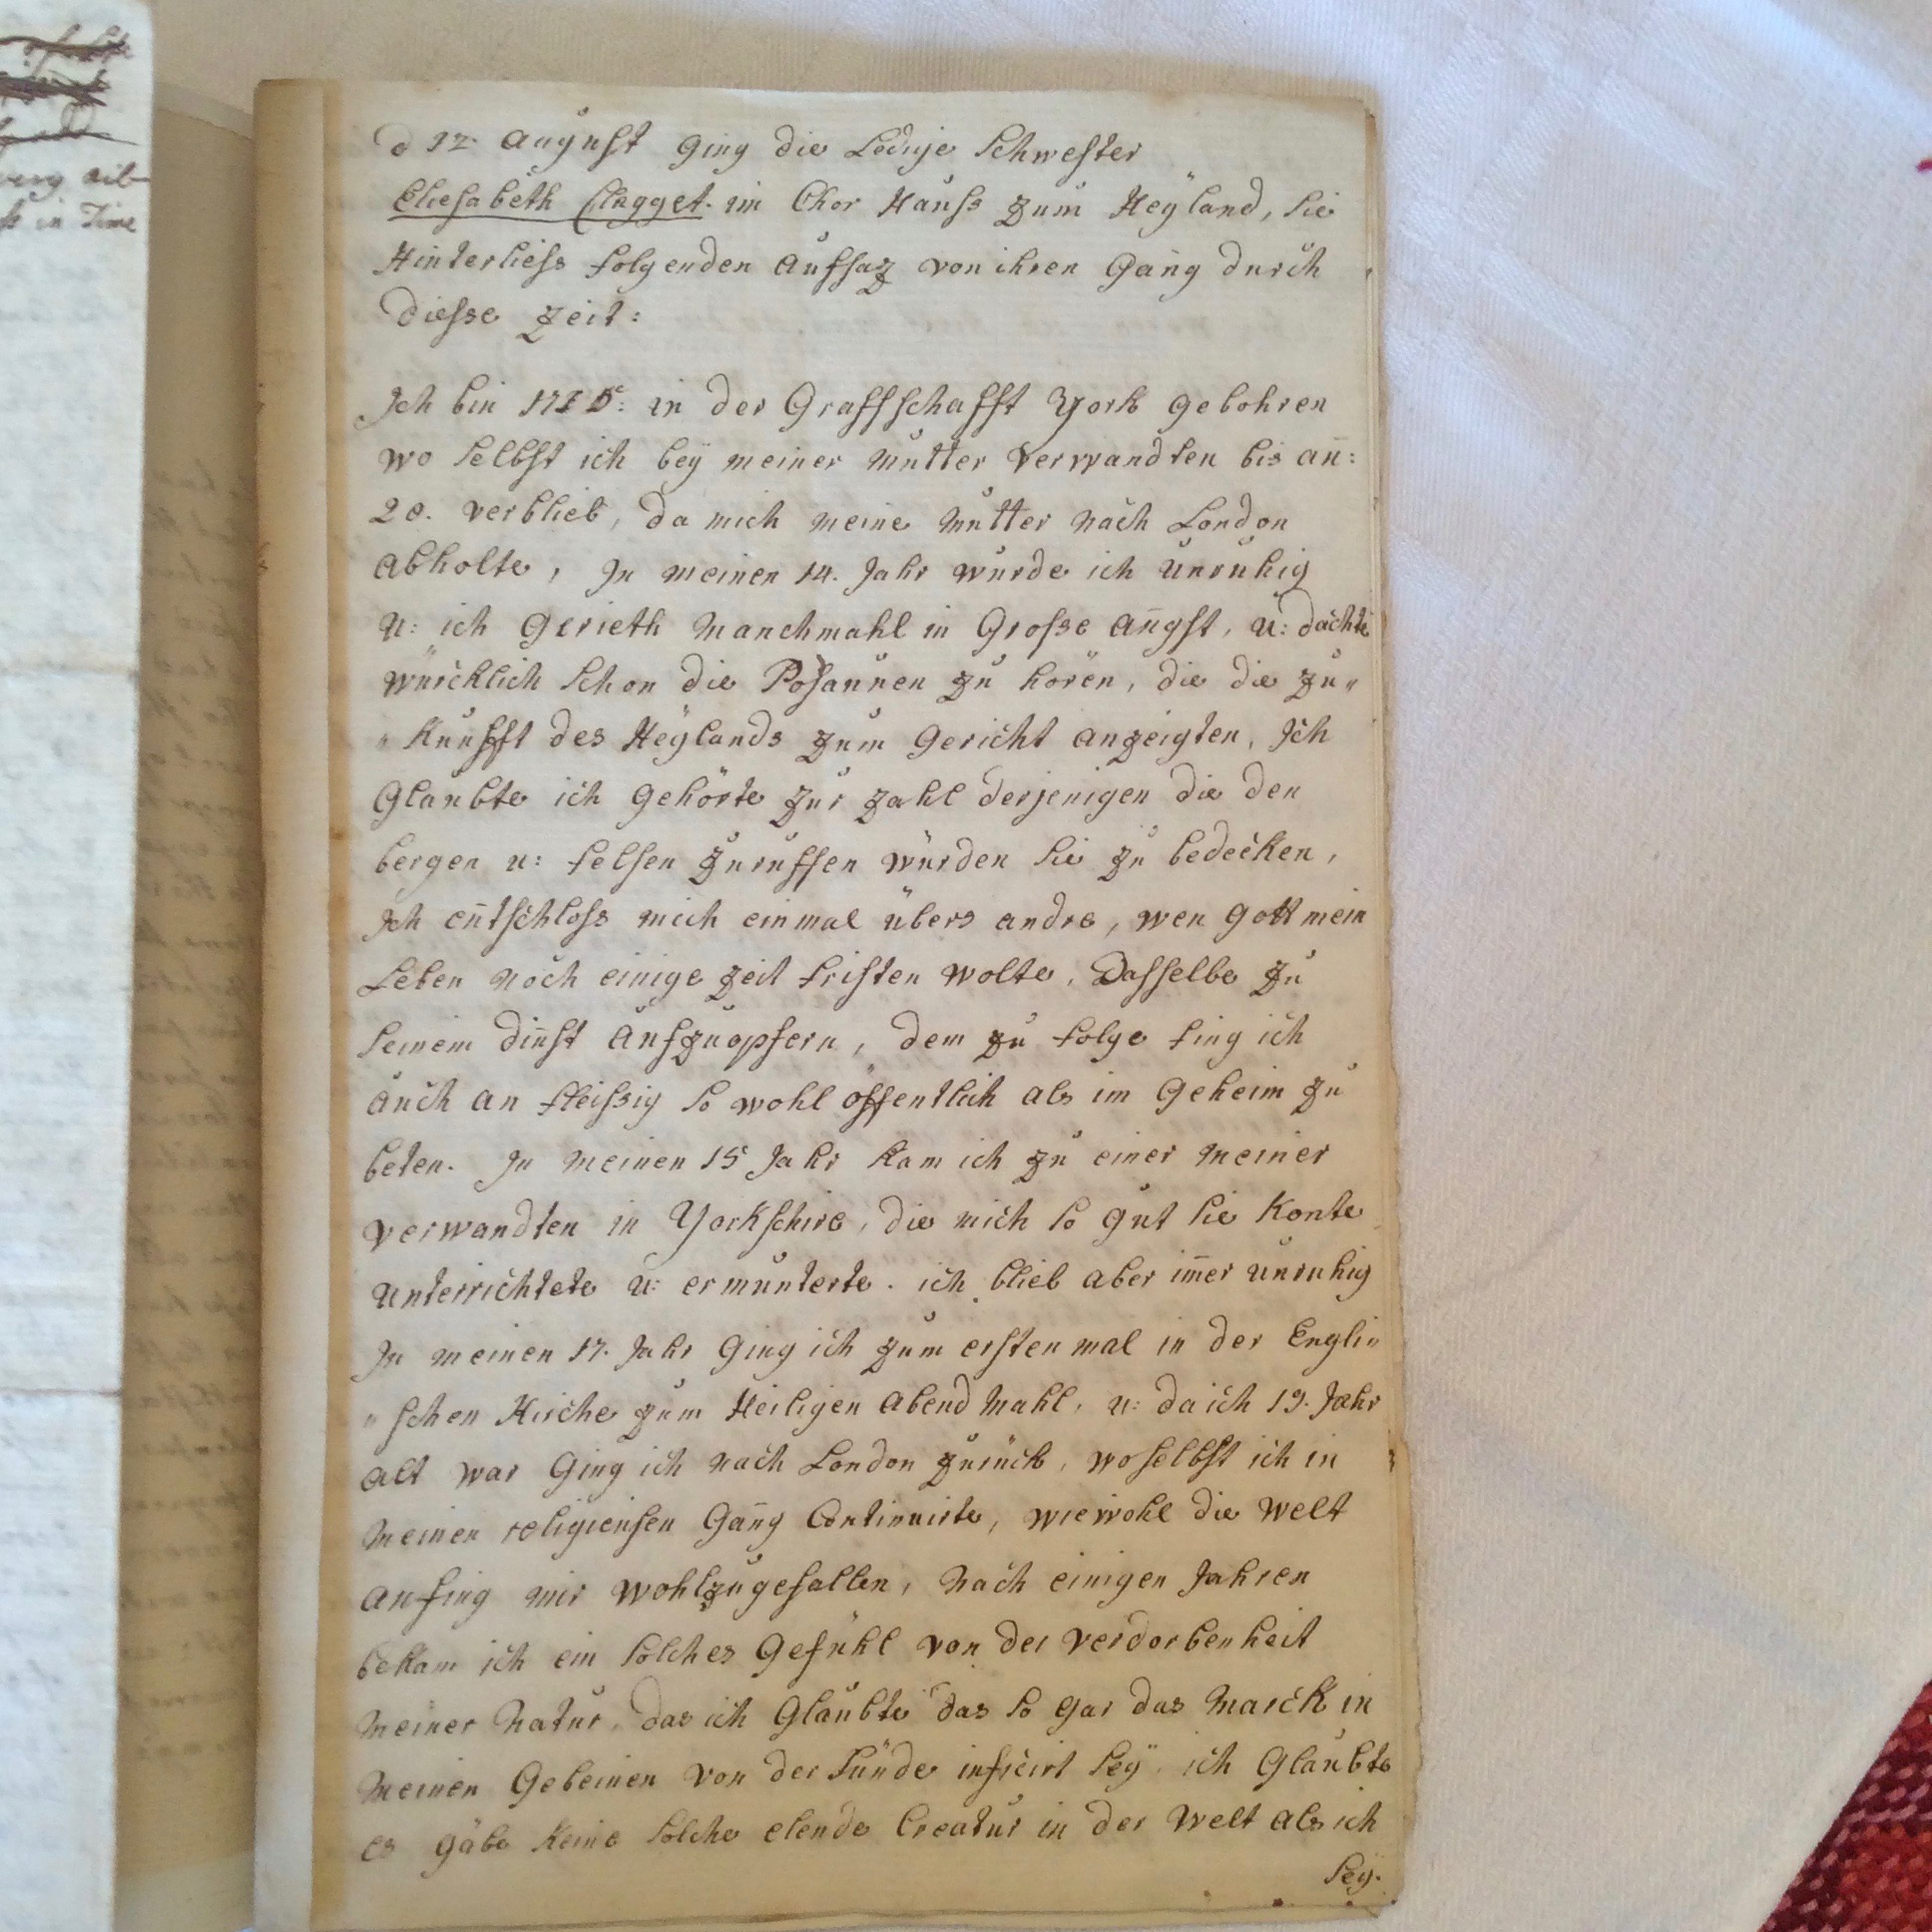 very
in Time
d 12. august ging die Ledige Schwester
Eliesabeth Clagget. im Chor Hauss zum Heÿland, Sie
Hinterliess folgenden Aufsaz von ihren Gan̄g durch
diesse Zeit:
Ich bin 1715: in der Graffschafft York gebohren
wo selbst ich beÿ meiner Mutter Verwandten bis an̄:
20. verblieb, da mich meine Mutter nach London
abholte, In meinen 14. Jahr wurde ich unruhig
u: ich gerieth manchmahl in Grosse an̄gst, u: dachte
würcklich schon die Posaunen zu hören, die die Zu„
„kunfft des Heÿlands zum Gericht anzeigten, Ich
Glaubte ich gehörte zur zahl derjenigen die den
bergen u: felsen zuruffen würden Sie zu bedecken,
Ich en̄tschloss mich einmal übers andre, wen Gott mein
Leben noch einige Zeit fristen wolte, Dasselbe zu
Seinem din̄st aufzuopfern, dem zu folge fing ich
auch an fleissig so wohl öffentlich als im Geheim zu
beten. In meinen 15 Jahr kam ich zu einer meiner
verwandten in Yorkschire, die mich so gut sie konte
unterrichtete u: ermunterte. ich blieb aber im̄er unruhig
In meinen 17. Jahr ging ich zum ersten mal in der Engli„
„schen Kirche zum Heiligen Abend Mahl, u: da ich 19. Jahr
alt war ging ich nach London zurück, woselbst ich in
meinen religieusen Gan̄g Continuirte, wiewohl die Welt
anfing mir wohlzugefallen, nach einigen Jahren
bekam ich ein solches Gefühl von der verdorbenheit
meiner Natur, das ich Glaubte das so gar das Marck in
meinen Gebeinen von der Sünde inficirt seÿ. ich Glaubte
es gäbe keine solche elende Creatur in der Welt als ich
seÿ.